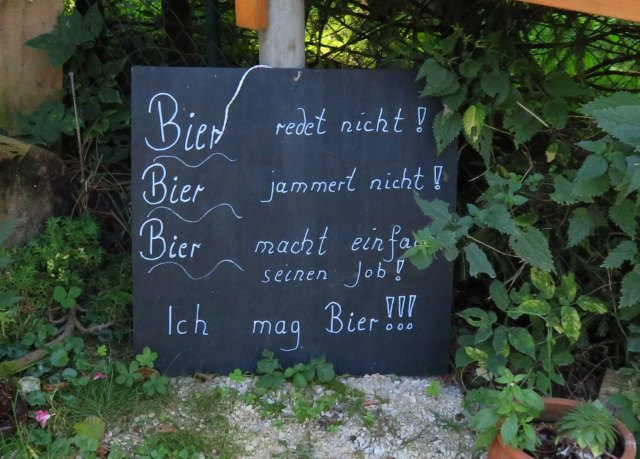 Bier redet nicht!
Bier jammert nicht!
Bier macht einfa
seinen Job!
Ich mag Bier!!!